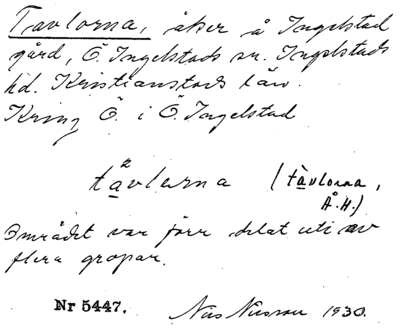 Tavlorna, åker å Ingelstad
gård, Ö. Ingelstads sn. Ingelstads
hd. Kristianstads län.
Kring Ö. i Ö. Ingelstad
tavlerna (tàvlorna,
Å.H.)
Området var förr delat uti av
flera gropar.
Nr 5447. Nils Nilsson 1930.